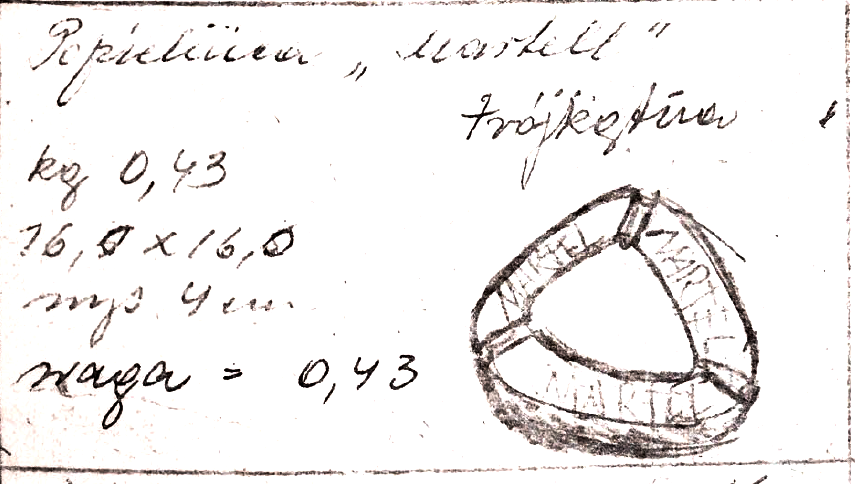 Popielnica „Martell"
trójkątna
kg 0,43
16,0 x 16,0
wys 4 cm.
waga = 0,43
MARTEL
MARTEL
MARTEL